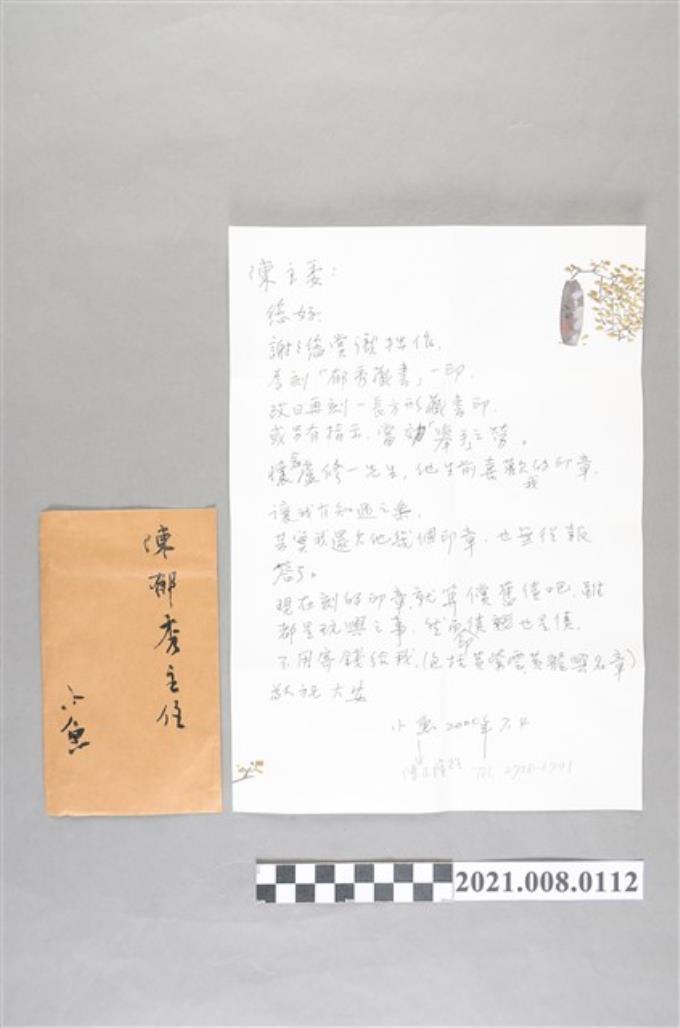 陳郁秀主任
小魚
陳主委：
您好
謝謝您賞識拙作,
奉刻「郁秀藏書」一印.
改日再刻一長方形藏書印.
或另有指示,當効「舉手之勞。
懷念盧修一先生,他生前喜歡我的印章,
讓我有知遇之樂.
其實我還欠他幾個印章,也無從報
答了。
現在刻的印章就算償舊債吧,雖
都是玩興之事,然而印債也是債,
不用寄錢給我,(包括
名章)
敬祝 大安
小魚 2000年7.4
2021.008.0112